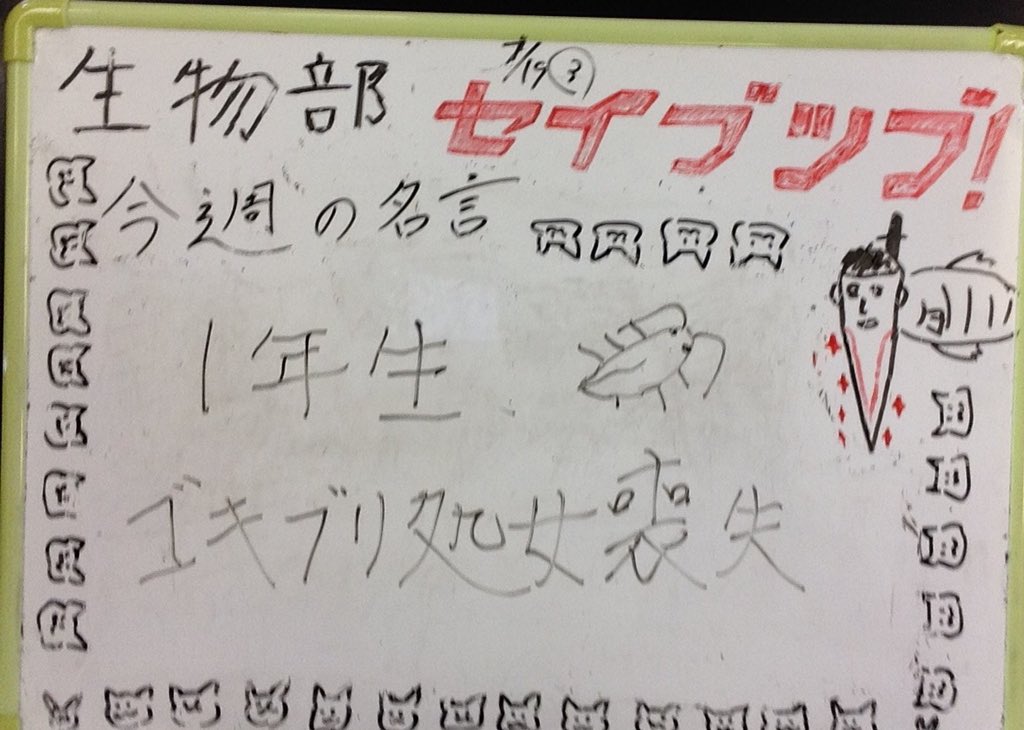 生物部
7/19
セイブップ!
今週の名言
1年生
ゴキブリ処女喪失